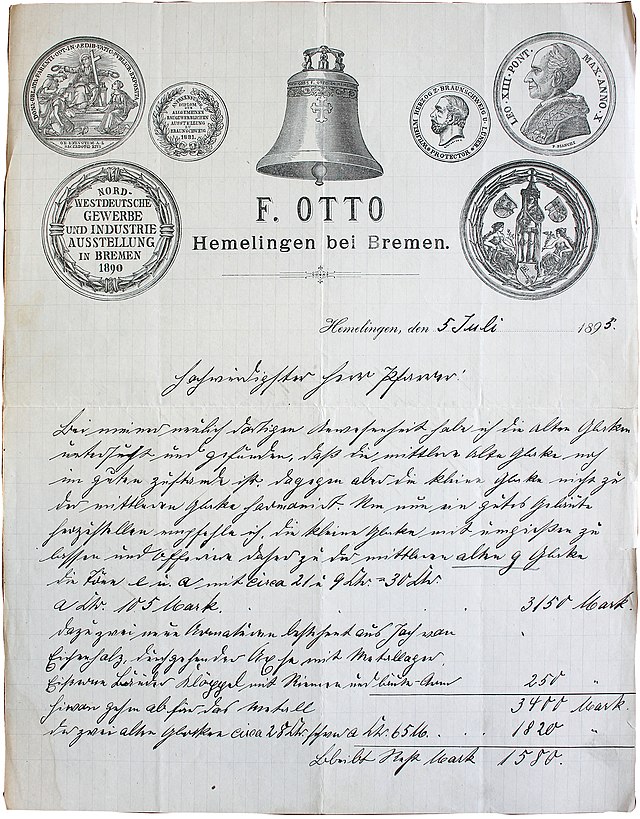 NORD-
WESTDEUTSCHE
GEWERBE
UND INDUSTRIE
AUSSTELLUNG
IN BREMEN
1890
ALLGEMEINEN
BAUGEWERBLICHEN
AUSSTELLUNG
BRAUNSCHWEIG
1881.
WILHELM HERZOG Z. BRAUNSCHWEIG U. LÜNEB.
PROTECTOR
LEO XIII PONT. MAX. ANNO X
F. BIANCHI
F. OTTO
Hemelingen bei Bremen.
Hemelingen, den 5 Juli 1895.
Hochwürdigster Herr Pfarrer!
Bei meiner neulich dortigen Anwesenheit habe ich die alten Glocken
untersucht und gefunden, daß die mittlere alte Glocke noch
im guten Zustande ist, dagegen aber die kleine Glocke nicht zu
der mittleren Glocke harmonirt. Um nun ein gutes Geläute
herzustellen empfehle ich, die kleine Glocke mit umgießen zu
lassen und offerire daher zu der mittleren alten g Glocke
die Töne e u. a mit circa 21 u 9 Ctr. = 30 Ctr.
a Ctr. 105 Mark. 3150 Mark
dazu zwei neue Armaturen bestehend aus Joch von
Eisenholz, durchgehender Axe mit Metallager,
Eiserne Bänder Klöppel mit Riemen und Läute-Arm 250 "
3400 Mark.
hievon gehen ab für das Metall
der zwei alten Glocken circa 28 Ctr. a Ctr. 65 M. 1820 "
Bleibt Rest Mark 1580.